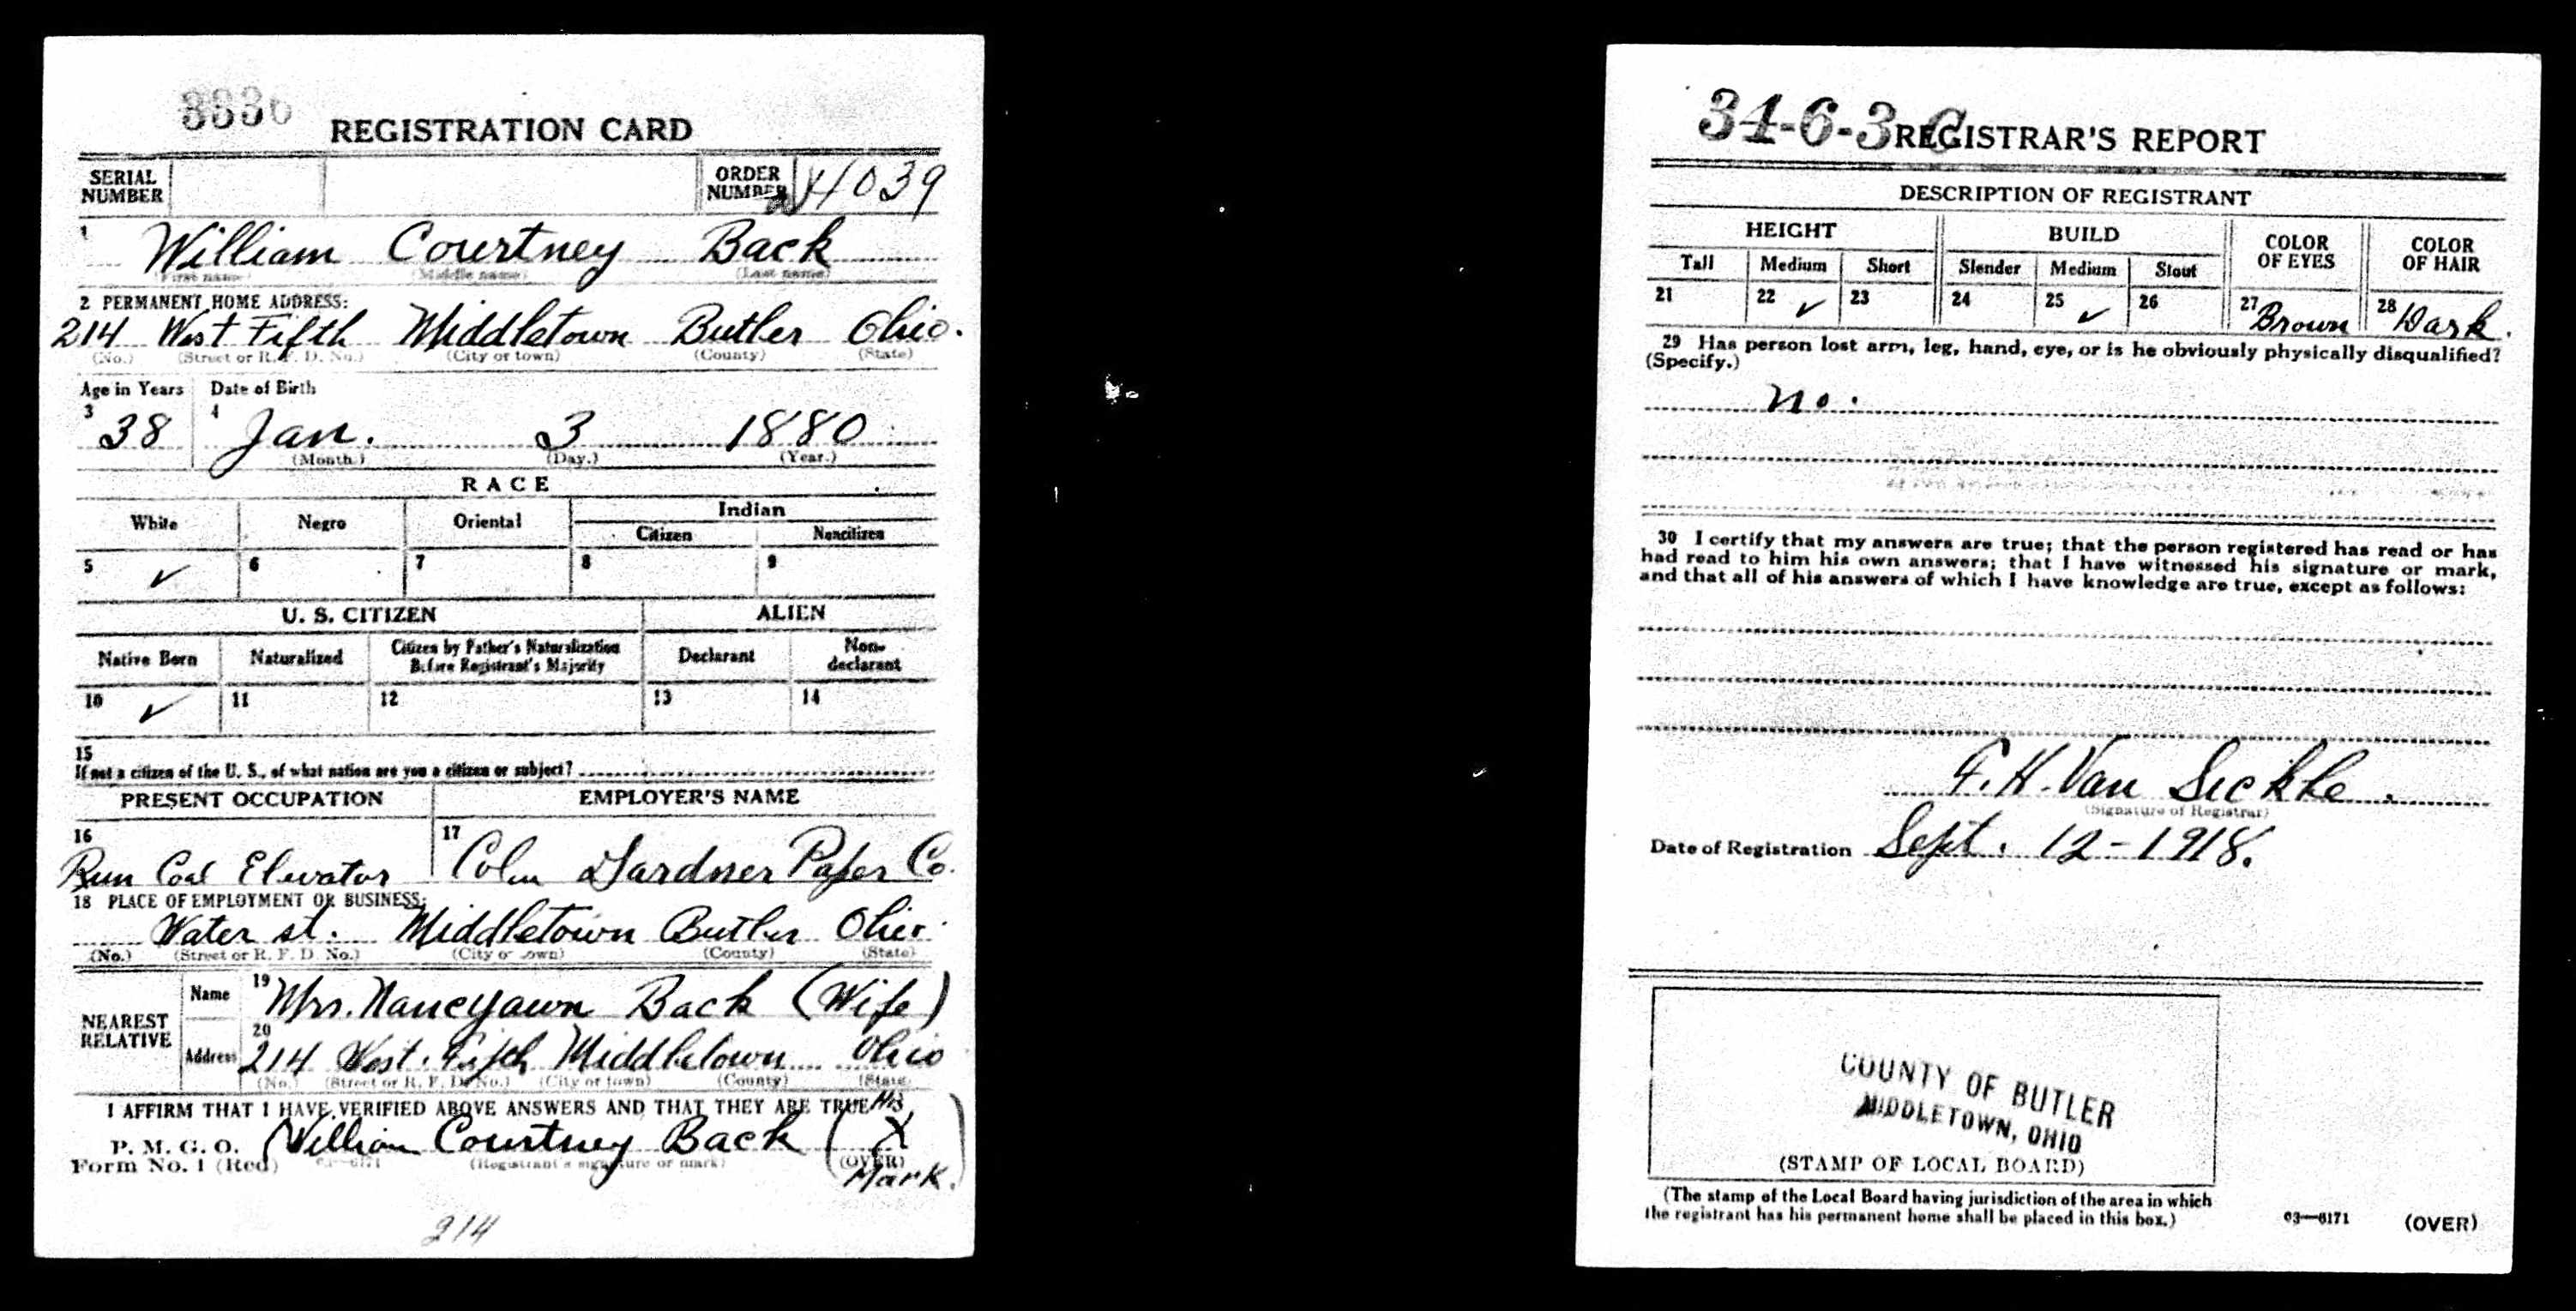 3336
REGISTRATION CARD
SERIAL NUMBER
ORDER NUMBER 4039
1 William Courtney Back
(First name) (Middle name) (Last name)
2 PERMANENT HOME ADDRESS:
214 West Fifth Middletown Butler Ohio.
(No.) (Street or R. F. D. No.) (City or town) (County) (State)
Age in Years Date of Birth
3 38 4 Jan. 3 1880
(Month.) (Day.) (Year.)
RACE
White Negro Oriental Indian
Citizen Noncitizen
5 ✓ 6 7 8 9
U. S. CITIZEN ALIEN
Native Born Naturalized Citizen by Father's Naturalization Before Registrant's Majority Declarant Non-declarant
10 ✓ 11 12 13 14
15
If not a citizen of the U. S., of what nation are you a citizen or subject?
PRESENT OCCUPATION EMPLOYER'S NAME
16 Run Coal Elevator 17 Colin Gardner Paper Co.
18 PLACE OF EMPLOYMENT OR BUSINESS:
Water st. Middletown Butler Ohio.
(No.) (Street or R. F. D. No.) (City or town) (County) (State)
NEAREST RELATIVE
Name 19 Mrs. Nancyawn Back (Wife)
Address 20 214 West Fifth Middletown Ohio
(No.) (Street or R. F. D. No.) (City or town) (County) (State)
I AFFIRM THAT I HAVE VERIFIED ABOVE ANSWERS AND THAT THEY ARE TRUE
P. M. G. O. William Courtney Back (His X Mark.)
Form No. 1 (Red) 03—6171 (Registrant's signature or mark) (OVER)
214
34-6-3 C
REGISTRAR'S REPORT
DESCRIPTION OF REGISTRANT
HEIGHT BUILD COLOR OF EYES COLOR OF HAIR
Tall Medium Short Slender Medium Stout
21 22 ✓ 23 24 25 ✓ 26 27 Brown 28 Dark.
29 Has person lost arm, leg, hand, eye, or is he obviously physically disqualified?
(Specify.)
no.
30 I certify that my answers are true; that the person registered has read or has
had read to him his own answers; that I have witnessed his signature or mark,
and that all of his answers of which I have knowledge are true, except as follows:
F. H. Van Sickle.
(Signature of Registrar)
Date of Registration Sept. 12-1918.
COUNTY OF BUTLER
MIDDLETOWN, OHIO
(STAMP OF LOCAL BOARD)
(The stamp of the Local Board having jurisdiction of the area in which
the registrant has his permanent home shall be placed in this box.)
03—6171 (OVER)